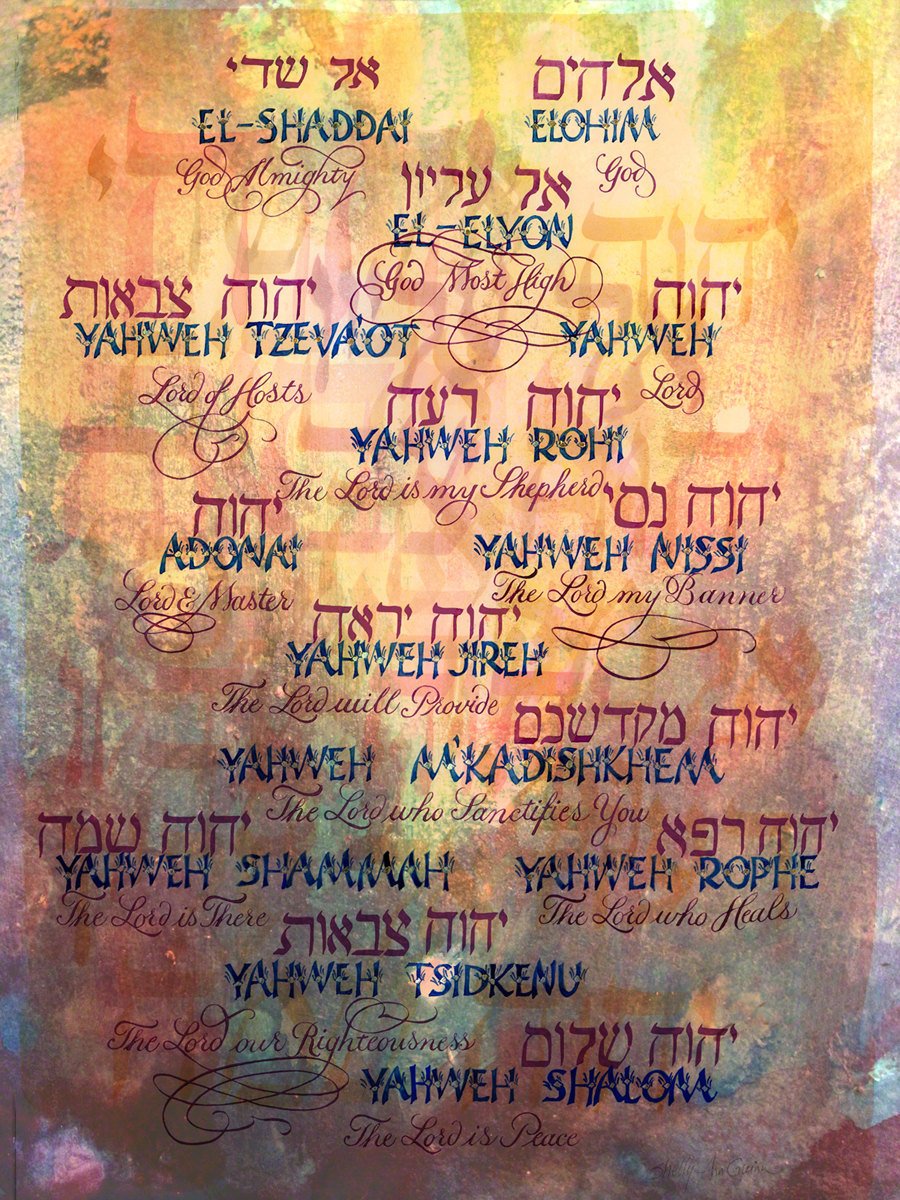 אל שדי
EL-SHADDAI
God Almighty
אלהים
ELOHIM
God
אל עליון
EL-ELYON
God Most High
יהוה צבאות
YAHWEH TZEVA'OT
Lord of Hosts
יהוה
YAHWEH
Lord
יהוה רעה
YAHWEH ROHI
The Lord is my Shepherd
יהוה
ADONAI
Lord & Master
יהוה נסי
YAHWEH NISSI
The Lord my Banner
יהוה יראה
YAHWEH JIREH
The Lord will Provide
יהוה מקדשכם
YAHWEH M'KADISHKHEM
The Lord who Sanctifies You
יהוה שמה
YAHWEH SHAMMAH
The Lord is There
יהוה רפא
YAHWEH ROPHE
The Lord who Heals
יהוה צבאות
YAHWEH TSIDKENU
The Lord our Righteousness
יהוה שלום
YAHWEH SHALOM
The Lord is Peace